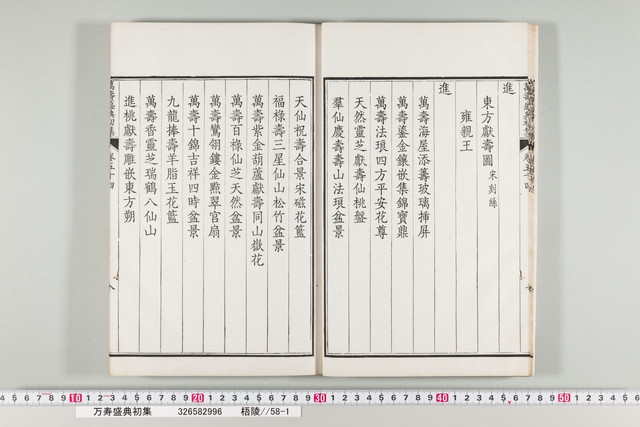 進
東方獻壽圖 宋刻絲
雍親王
進
萬壽海屋添籌玻璃插屏
萬壽鎏金鑲嵌集錦寶鼎
萬壽法琅四方平安花尊
天然靈芝獻壽仙桃盤
羣仙慶壽壽山法琅盆景
天仙祝壽合景宋磁花籃
福祿壽三星仙山松竹盆景
萬壽紫金葫蘆獻壽同山嶽花
萬壽百祿仙芝天然盆景
萬壽鸞翎鏤金點翠宮扇
萬壽十錦吉祥四時盆景
九龍捧壽羊脂玉花籃
萬壽香靈芝瑞鶴八仙山
進桃獻壽雕嵌東方朔
10 20 30 40 50
万寿盛典初集 326582996 梧陵//58-1